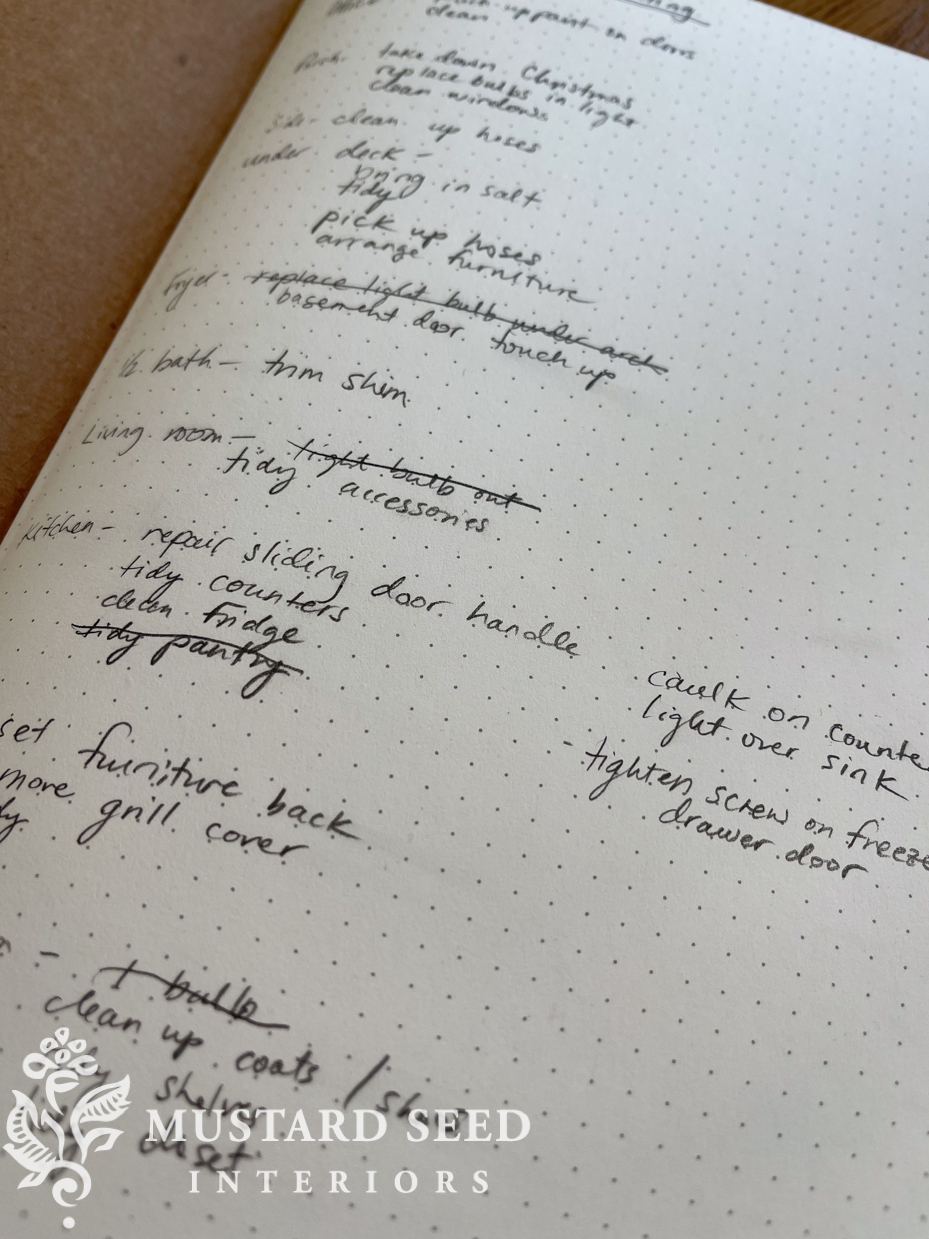 up paint on doors
clean
Porch - take down Christmas
replace bulbs in light
clean windows
Side - clean up hoses
under deck -
bring in salt
tidy
pick up hoses
arrange furniture
replace light bulb under arch
basement door touch up
1/2 bath - trim shim
Living room - light bulb out
tidy accessories
Kitchen - repair sliding door handle
tidy counters
clean fridge
tidy pantry
caulk on counte
light over sink
- tighten screw on freeze
drawer door
set furniture back
more grill cover
dy
- 1 bulb
clean up coats /
shelves
MUSTARD SEED
INTERIORS